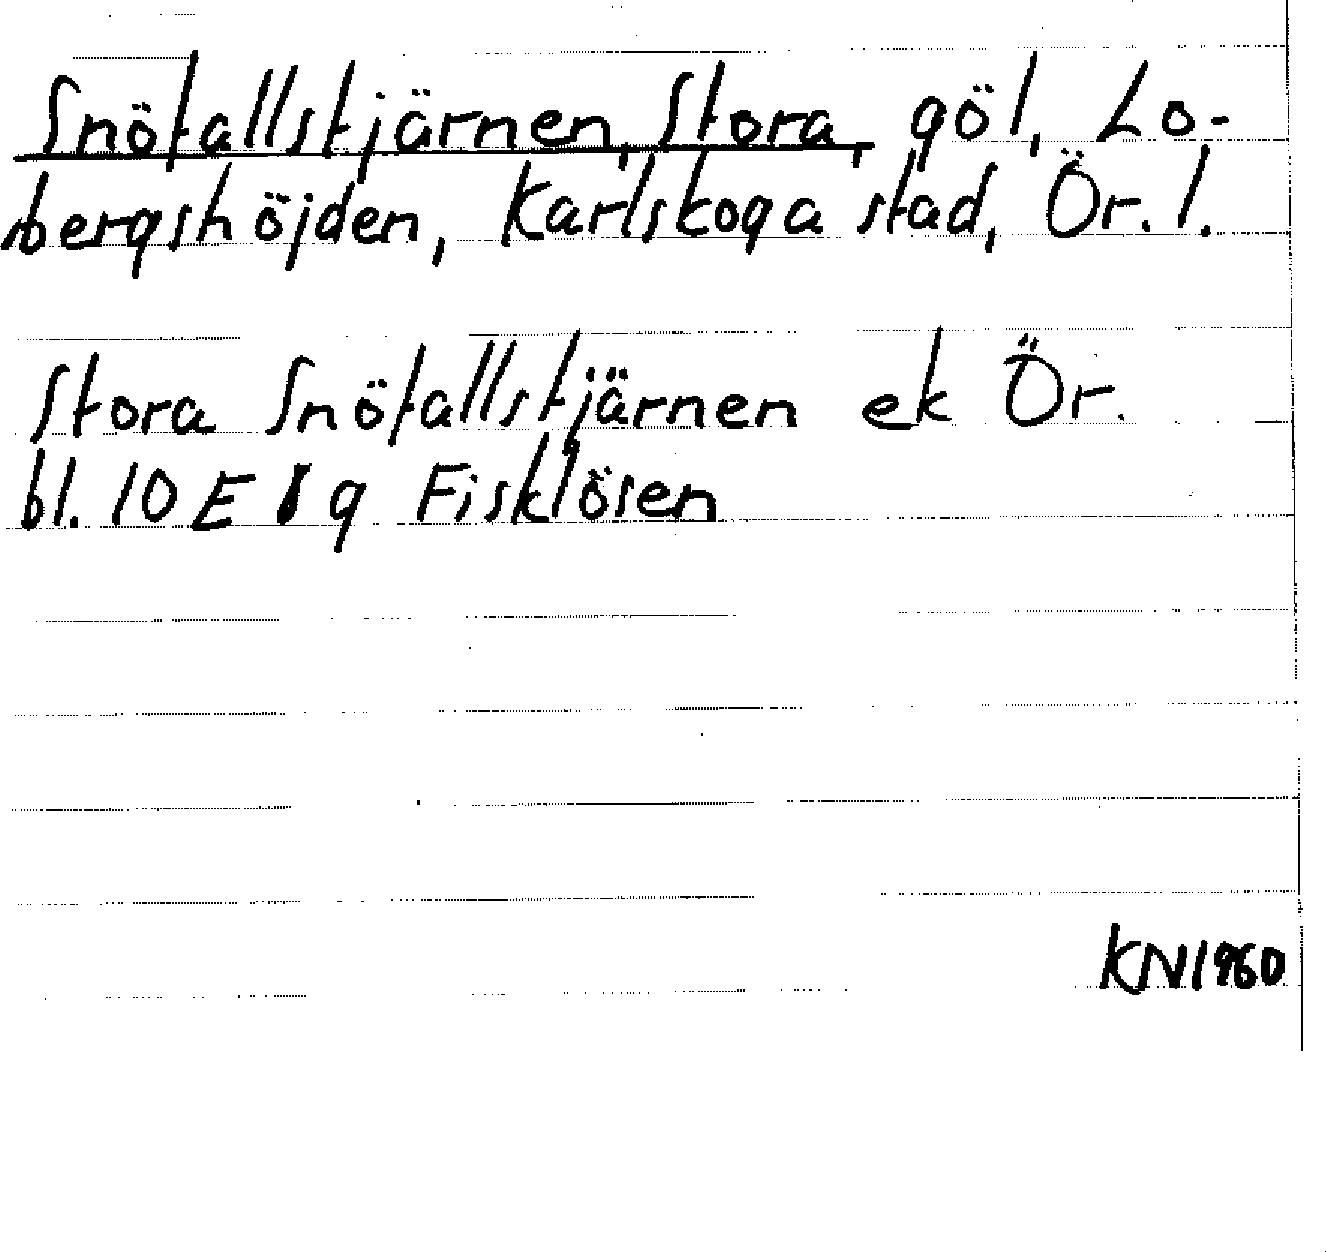 Snöfallstjärnen, Stora, göl, Lo-
bergshöjden, Karlskoga stad, Ör. l.
Stora Snöfallstjärnen ek Ör.
bl. 10 E 8 g Fisklösen
KN 1960